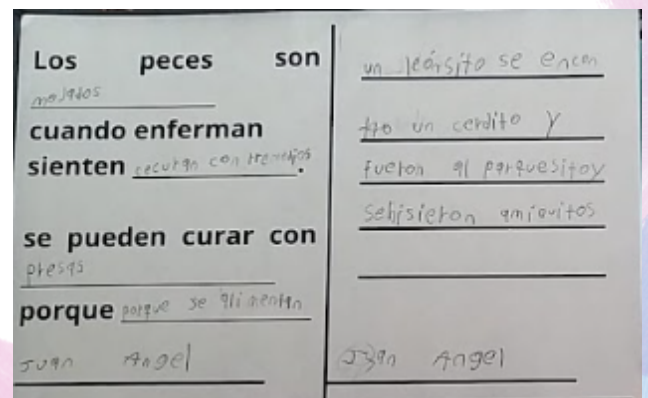 Los peces son
mojados
cuando enferman
sienten securan con rremedios.
se pueden curar con
presas
porque porque se alimentan
Juan Angel
un leonsito se encon
tro un cerdito y
fueron al parquesitoy
sehisieron amiguitos
Juan Angel